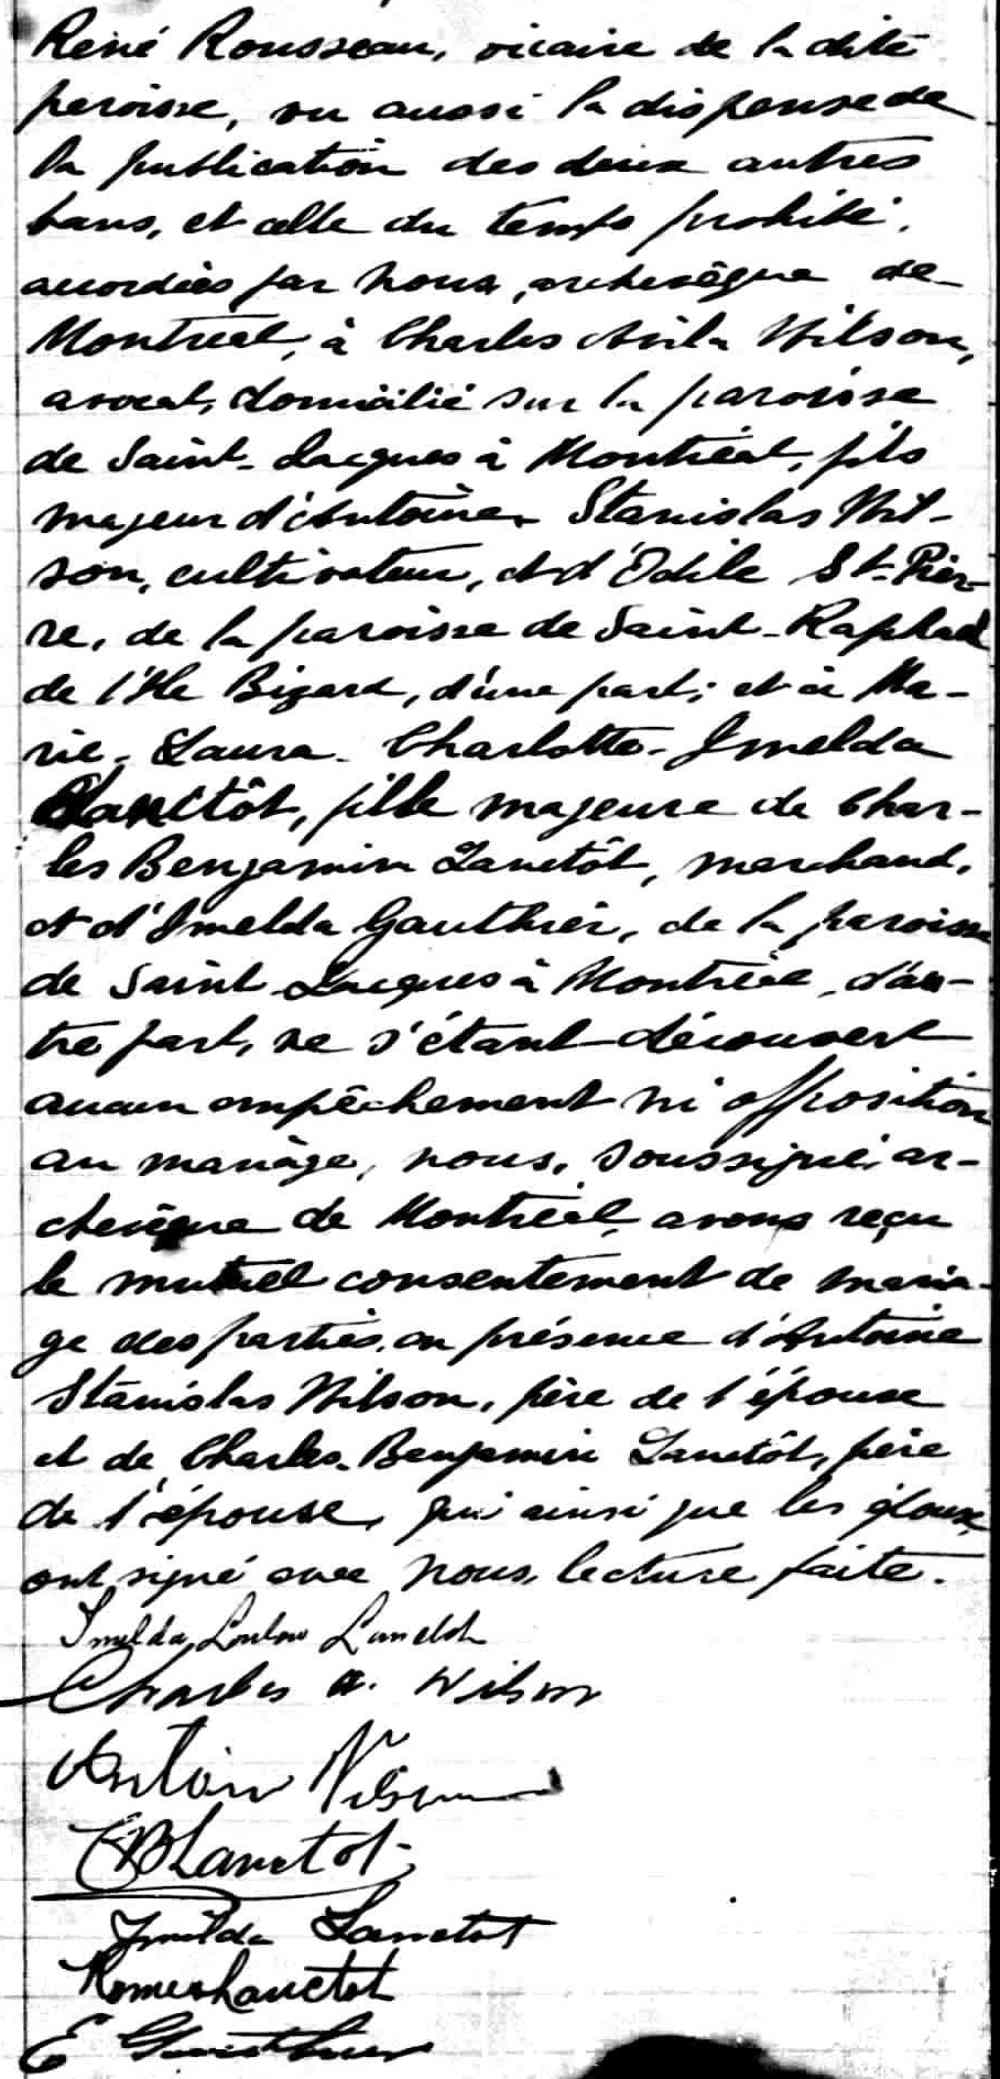 René Rousseau, vicaire de la dite
paroisse, vu aussi la dispense de
la publication des deux autres
bans, et celle du temps prohibé,
accordées par nous, archevêque de
Montréal, à Charles Avila Wilson,
avocat, domicilié sur la paroisse
de Saint-Jacques à Montréal, fils
majeur d'Antoine Stanislas Wil-
son, cultivateur, et d'Odile St-Pier-
re, de la paroisse de Saint-Raphael
de l'Ile Bizard, d'une part; et à Ma-
rie-Laura-Charlotte-Imelda
Lanctôt, fille majeure de Char-
les Benjamin Lanctôt, marchand,
et d'Imelda Gauthier, de la paroisse
de Saint-Jacques à Montréal, d'au-
tre part, ne s'étant découvert
aucun empêchement ni opposition
au mariage, nous, soussigné, ar-
chevêque de Montréal, avons reçu
le mutuel consentement de maria-
ge des parties, en présence d'Antoine
Stanislas Wilson, père de l'épouse
et de Charles-Benjamin Lanctôt, père
de l'épouse, qui ainsi que les époux
ont signé avec nous, lecture faite.
Imelda Lanctot
Charles A. Wilson
Antoine Wilson
CB Lanctot
Imelda Lanctot
Romeo Lanctot
E Gauthier